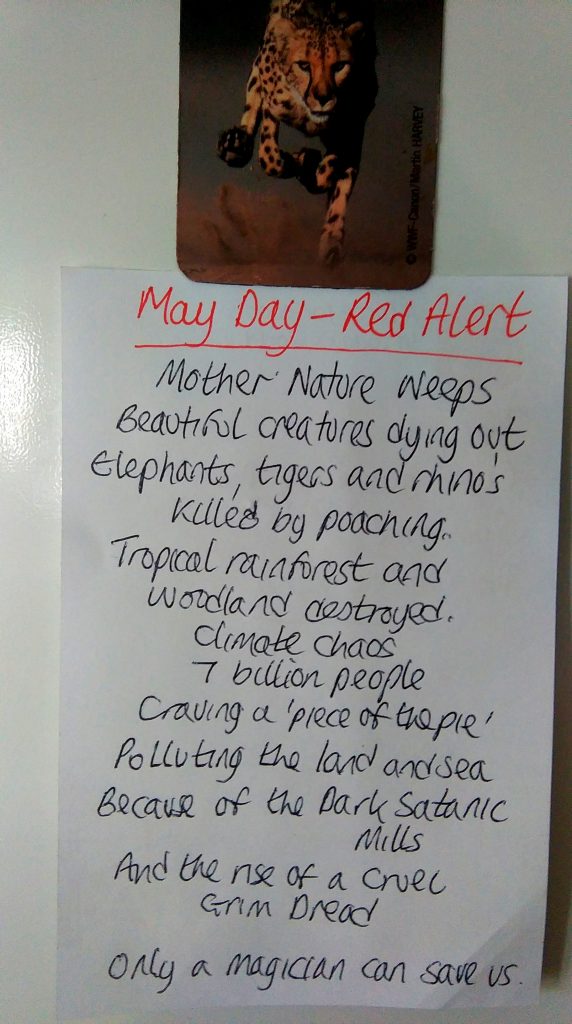 © WWF-Canon/Martin HARVEY
May Day - Red Alert
Mother Nature weeps
Beautiful creatures dying out
Elephants, tigers and rhino's
killed by poaching.
Tropical rainforest and
woodland destroyed.
Climate chaos
7 billion people
Craving a 'piece of the pie'
Polluting the land and sea
Because of the Dark Satanic
Mills
And the rise of a cruel
Grim Dread
Only a magician can save us.